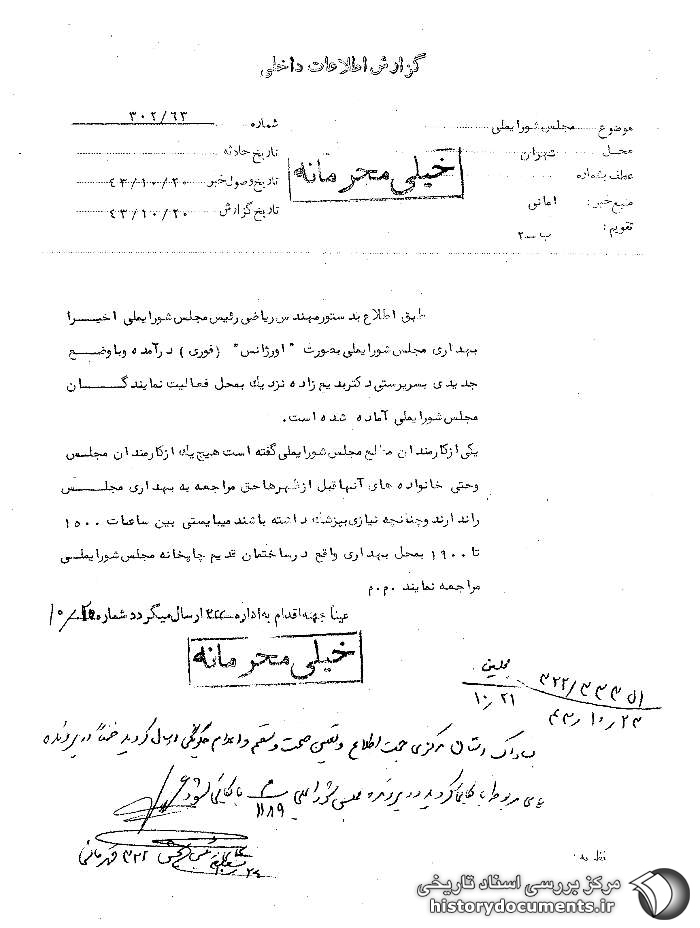 گزارش اطلاعات داخلی
موضوع مجلس شورایملی
محل تهران
عطف بشماره
منبع خبر: امانی
تقویم: ب ـ ۲
شماره ۳۰۲/۶۳
تاریخ حادثه
تاریخ وصول خبر ۴۳/۱۰/۲۰
تاریخ گزارش ۴۳/۱۰/۲۰
خیلی محرمانه
طبق اطلاع بدستور مهندس ریاضی رئیس مجلس شورایملی اخیرا
بهداری مجلس شورایملی بصورت "اورژانس" (فوری) درآمده وبا وضع
جدیدی بسرپرستی دکتر بدیع زاده نزدیك بمحل فعالیت نمایندگان
مجلس شورایملی آماده شده است.
یکی از کارمندان مطلع مجلس شورایملی گفته است هیچیك از کارمندان مجلس
وحتی خانواده های آنها قبل از ظهرها حق مراجعه به بهداری مجلس
را ندارند وچنانچه نیازی بپزشك داشته باشند میبایستی بین ساعات ۱۵۰۰
تا ۱۹۰۰ بمحل بهداری واقع در ساختمان قدیم چاپخانه مجلس شورایملی
مراجعه نمایند م.م.
عیناً جهته اقدام به اداره ۳۲۲ ارسال میگردد شماره
خیلی محرمانه
۱۰/۲۱
۳۲۲/۳۳۳۵۱
۴۳/۱۰/۲۳
مرکزی جهت اطلاع و تعیین صحت و سقم و اعلام چگونگی ارسال گردید ضمناً در پرونده
های مربوط بایگانی گردید در پرونده مجلس شورایملی م ۱۱۸۹ بایگانی شود
۳۲۲ قهرمانی
مرکز بررسی اسناد تاریخی
historydocuments.ir